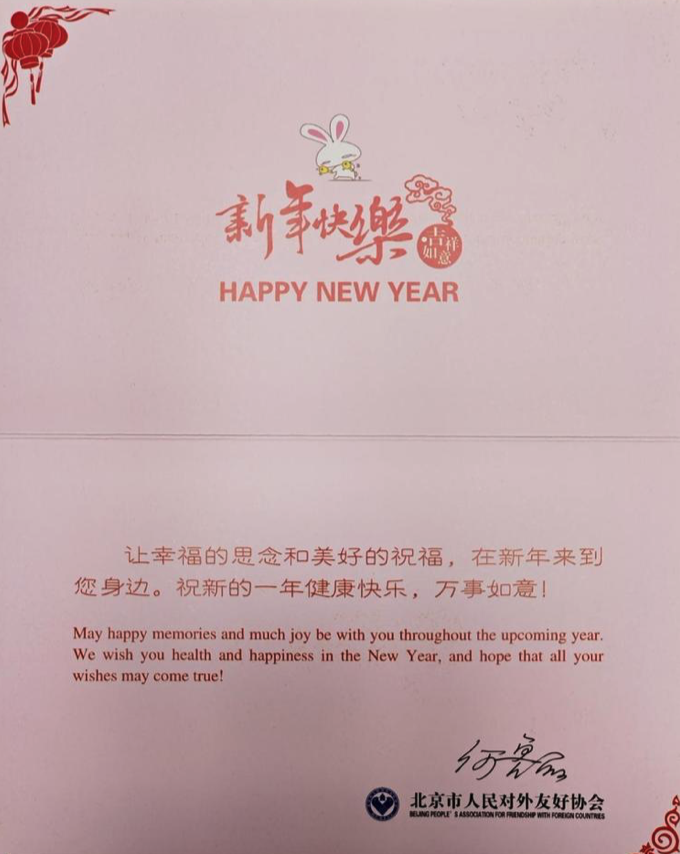 新年快樂
吉祥
如意
HAPPY NEW YEAR
让幸福的思念和美好的祝福，在新年来到
您身边。祝新的一年健康快乐，万事如意！
May happy memories and much joy be with you throughout the upcoming year.
We wish you health and happiness in the New Year, and hope that all your
wishes may come true!
北京市人民对外友好协会
BEIJING PEOPLE'S ASSOCIATION FOR FRIENDSHIP WITH FOREIGN COUNTRIES